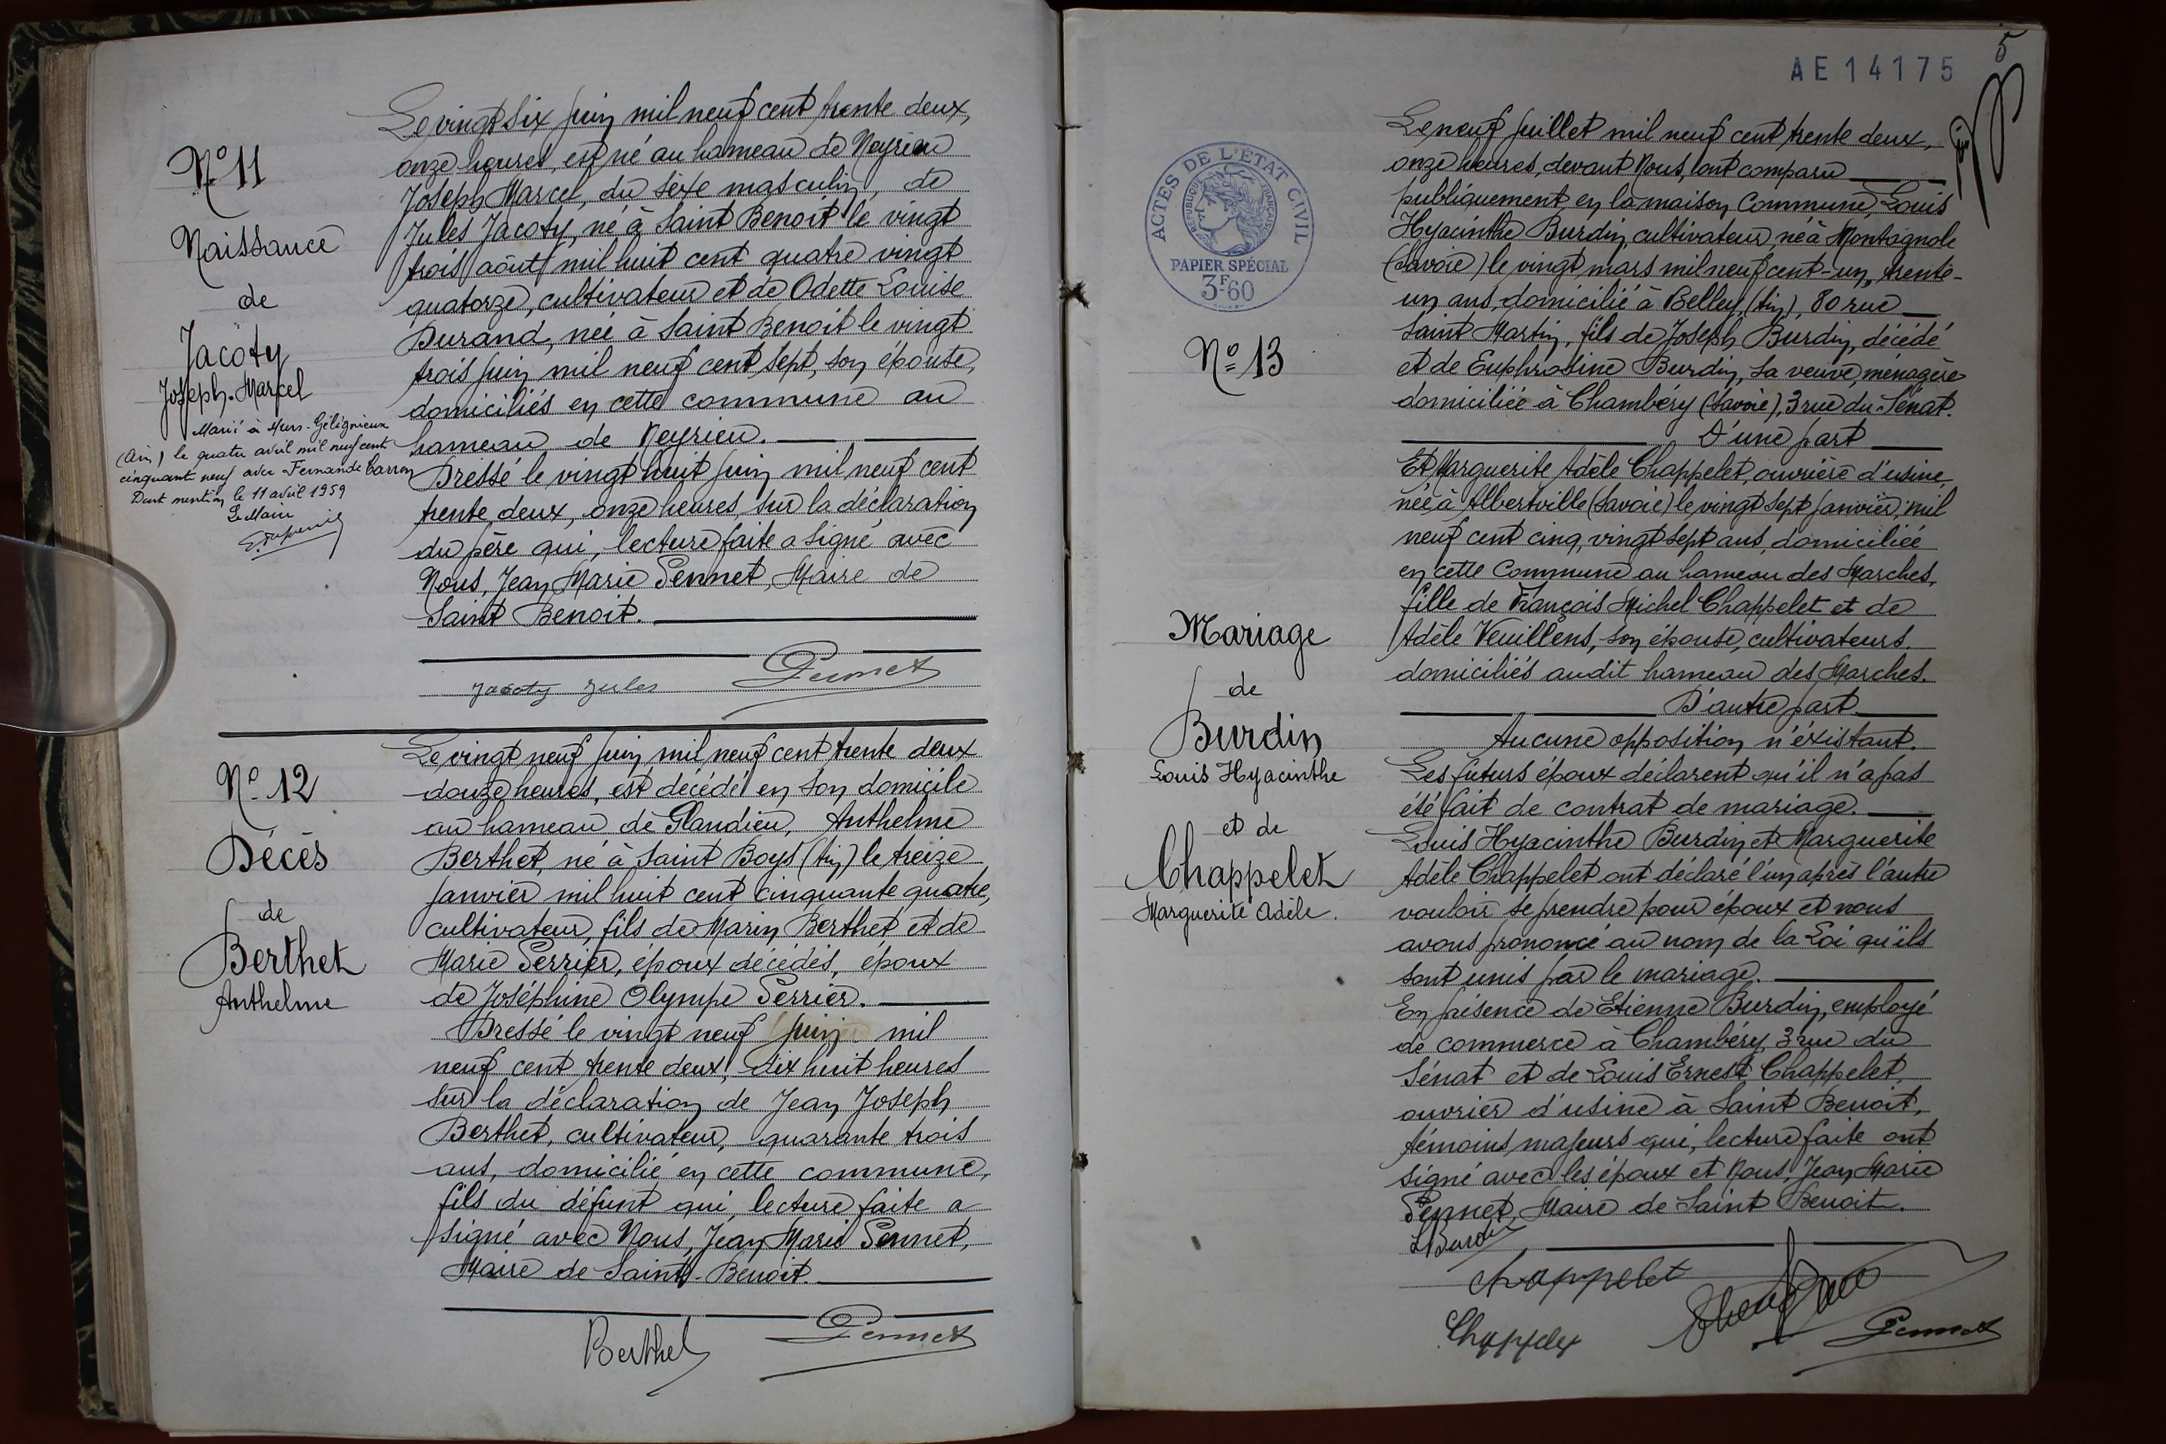 N° 11
Naissance
de
Jacoty
Joseph-Marcel
Marié à Murs-Gélignieux
(Ain) le quatre avril mil neuf cent
cinquant neuf avec Fernande Carron
Dont mention le 11 avril 1959
Le Maire
Le vingt six juin mil neuf cent trente deux,
onze heures, est né au hameau de Neyrieu
Joseph Marcel, du sexe masculin, de
Jules Jacoty, né à Saint Benoit le vingt
trois août mil huit cent quatre vingt
quatorze, cultivateur et de Odette Louise
Durand, née à Saint Benoit le vingt
trois juin mil neuf cent sept, son épouse,
domiciliés en cette commune au
hameau de Neyrieu.
Dressé le vingt huit juin mil neuf cent
trente deux, onze heures, sur la déclaration
du père qui, lecture faite a signé avec
Nous, Jean Marie Pennet, Maire de
Saint Benoit.
Jacoty Jules
Pennet
N° 12
Décès
de
Berthet
Anthelme
Le vingt neuf juin mil neuf cent trente deux
douze heures, est décédé en son domicile
au hameau de Glandieu, Anthelme
Berthet, né à Saint Boys (Ain) le treize
janvier mil huit cent cinquante quatre,
cultivateur, fils de Marin Berthet et de
Marie Perrier, époux décédés, époux
de Joséphine Olympe Perrier.
Dressé le vingt neuf juin mil
neuf cent trente deux, dix huit heures
sur la déclaration de Jean Joseph
Berthet, cultivateur, quarante trois
ans, domicilié en cette commune,
fils du défunt qui, lecture faite a
signé avec Nous, Jean Marie Pennet,
Maire de Saint-Benoit.
Berthet
Pennet
5
AE14175
ACTES DE L'ÉTAT CIVIL
RÉPUBLIQUE FRANÇAISE
PAPIER SPÉCIAL
3F.60
N° 13
Mariage
de
Burdin
Louis Hyacinthe
et de
Chappelet
Marguerite Adèle.
Le neuf juillet mil neuf cent trente deux,
onze heures, devant Nous, ont comparu
publiquement en la maison Commune, Louis
Hyacinthe Burdin, cultivateur, né à Montagnole
(Savoie) le vingt mars mil neuf cent-un, trente-
un ans, domicilié à Belley (Ain), 80 rue
Saint Martin, fils de Joseph Burdin, décédé
et de Euphrosine Burdin, sa veuve, ménagère
domiciliée à Chambéry (Savoie), 3 rue du Sénat.
D'une part
Et Marguerite Adèle Chappelet, ouvrière d'usine
née à Albertville (Savoie) le vingt sept janvier mil
neuf cent cinq, vingt sept ans, domiciliée
en cette Commune au hameau des Marches,
fille de François Michel Chappelet et de
Adèle Veuillens, son épouse, cultivateurs
domiciliés audit hameau des Marches.
D'autre part
Aucune opposition n'éxistant.
Les futurs époux déclarent qu'il n'a pas
été fait de contrat de mariage.
Louis Hyacinthe Burdin et Marguerite
Adèle Chappelet ont déclaré l'un après l'autre
vouloir se prendre pour époux et nous
avons prononcé au nom de la Loi qu'ils
sont unis par le mariage.
En présence de Etienne Burdin, employé
de commerce à Chambéry, 3 rue du
Sénat et de Louis Ernest Chappelet,
ouvrier d'usine à Saint Benoit,
témoins majeurs qui, lecture faite ont
signé avec les époux et Nous, Jean Marie
Pennet, Maire de Saint Benoit.
L Burdin
Chappelet
Chappelet
Pennet